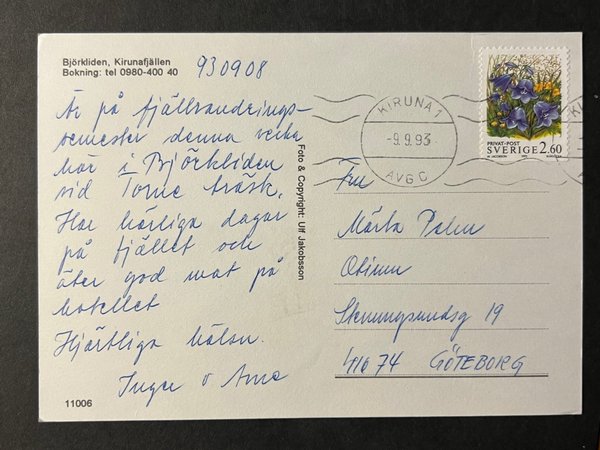 Björkliden, Kirunafjällen
Bokning: tel 0980-400 40
930908
Är på fjällvandrings-
semester denna vecka
här i Björkliden
vid Torne träsk.
Har härliga dagar
på fjället och
äter god mat på
hotellet
Hjärtliga hälsn.
Inger o Arne
11006
Foto & Copyright: Ulf Jakobsson
KIRUNA 1
-9.9.93
AVG C
PRIVAT-POST
SVERIGE 2.60
Fru
Märta Palm
Skrunnsundsg 19
416 74 GÖTEBORG